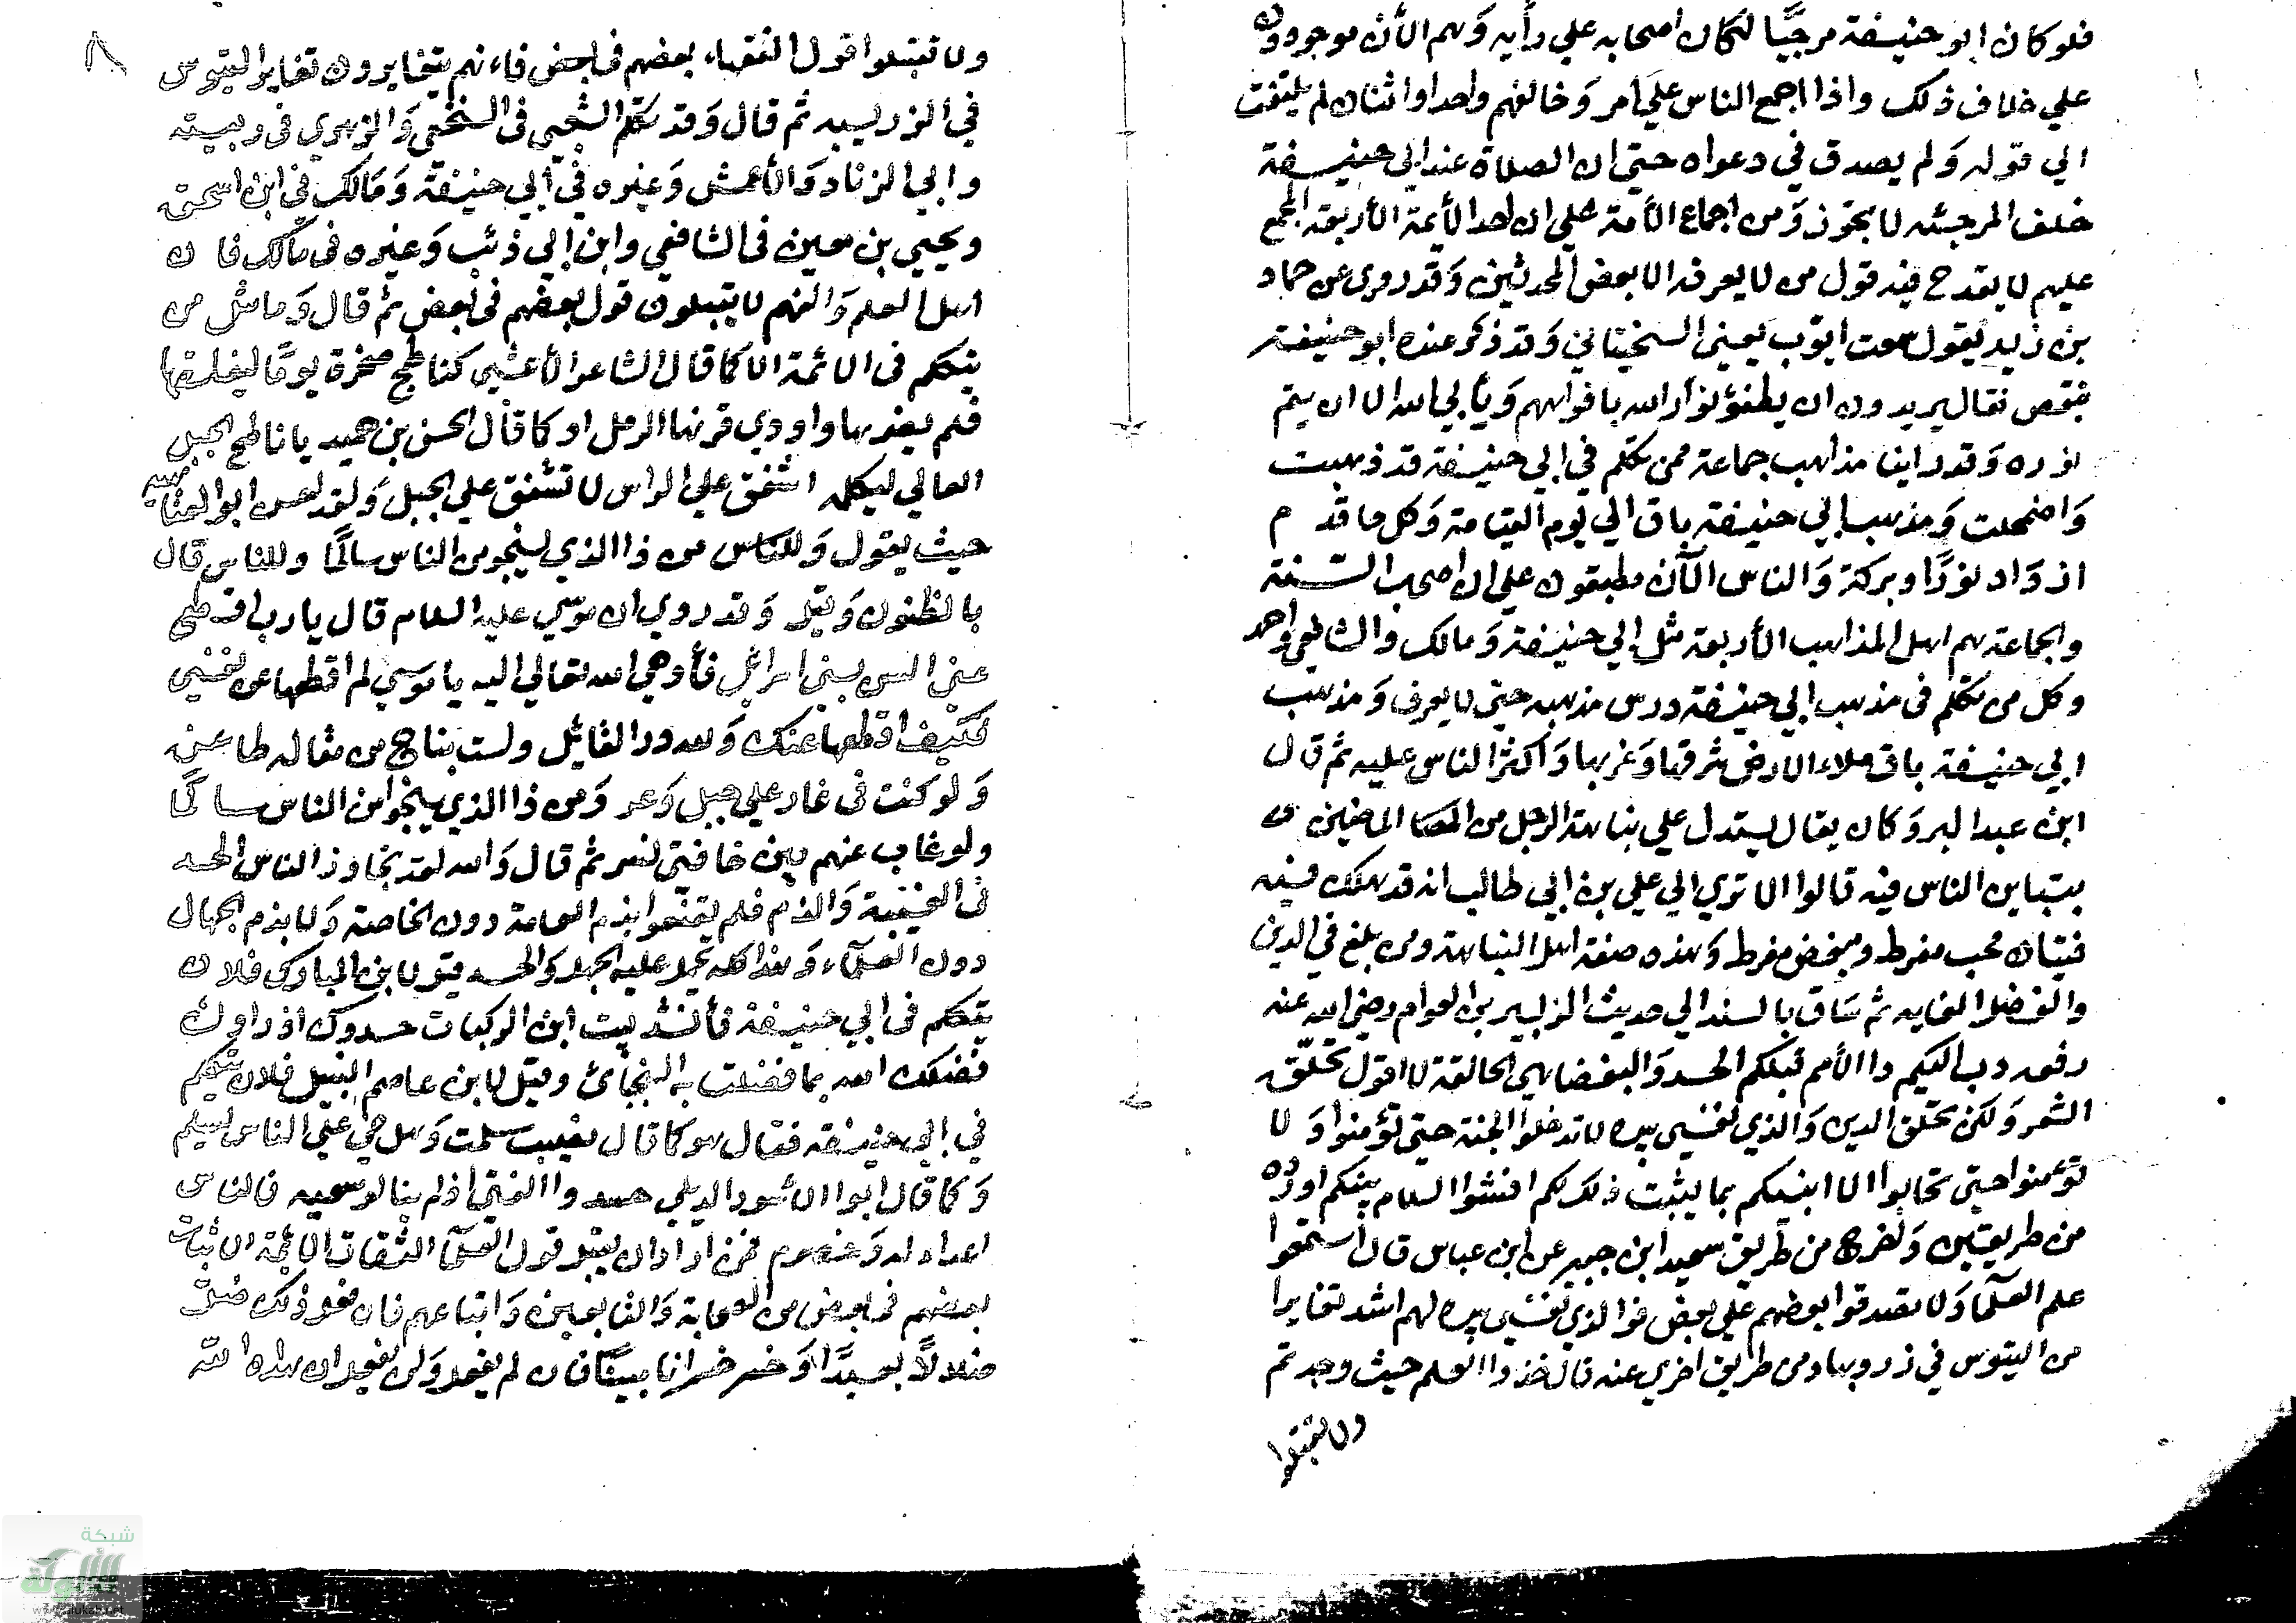 فلو كان ابو حنيفة مرجيًا لكان اصحابه علي رأيه وَهم الأن موجودون
علي خلاف ذلك واذا اجمع الناس علَي أمر وَخالفهم واحد او اثنان لم يلتفت
الي قوله وَلم يصدق في دعواه حتي ان الصلاة عند ابي حنيفة
خلف المرجئه لا يجَوز وَمن اجماع الأمة علي ان احد الأيمة الأربعة المجمع
عليهم لا يقدح فيه قول من لا يعرفه الا بعض المحدثين وَقد روي عن حماد
بن زيد يَقول سمعت ايوَب يعني السختياني وَقد ذكر عنده ابو حنيفة
بنقص فقال يريدون ان يطفؤ نوَر الله بافواههم وَيأبي الله الا ان يتم
نوره وَقد راينا مذاهب جماعة ممن تكَلم في ابي حنيفة قد ذهبت
وَاضمحلت وَمذهب ابي حنيفة باق الي يَوم القيامة وَكل ما قدم
ازدَاد نورًا وبركة وَالناس الآن مطبقون علي ان اصحاب السنة
والجماعة هم اهل المذاهب الأربعة مثل ابي حنيَفة وَمالك والشافعي واحمد
وكل من تكلم في مذهب ابي حنيفة درس مذهبه حتي لا يعرف وَمذهب
ابي حنيفة باق ملاء الارض شرقها وَغربها وَأكثر الناس عليه ثم قال
ابن عبد البر وَكان يقال يستدل علي نباهة الرجل من الماضين
بتباين الناس فيه قالوا الا تري الي علي بن ابي طالب انه قد هلك فيه
فئتان محب مفرط ومبغض مفرط وَهذه صفة اهل النباهة ومن بلغ في الدين
والفضل الغايه ثم سَاق بالسند الي حديث الزبير بن العوام رضي الله عنه
رفعه دب اليكم داا الأمم قبلكم الحسد وَالبغضا هي الحالقة لا اقول تحلّق
الشعر وَلكن تحلق الدين وَالذي نفسي بيده لا تدخلوا الجنة حتي تؤمنوا وَلا
تؤمنوا حتي تحابوا الا انبيكم بما يثبت ذلك لكم افشوا السلام بينكم اورده
من طريقين وَاخرج من طريق سعيد ابن جبير عن ابن عباس قال استمعوا
علم العلمآ وَلا تصدقوا بعضهم علي بعض فوَا الذي نفسي بيده لهم اشد تغايرا
من التيوس في زروبها ومن طريق اخري عنه قال خذوا العلم حيث وجدتم
ولا تقبلوا
ولا تقبلوا قول الفقهاء بعضهم في بعض فاءنهم يتغايرون تغاير التيوس
في الزريبه ثم قال وَقد تكَلم الشعبي في النخعي وَالزهري في ربيعة
وابي الزناد وَالأعمش وَغيره في أبي حنيفة وَمَالك في ابن اسحق
ويحيي بن معين في الشافعي وابن ابي ذئب وَغيره في مَالك فان
اهل العلم وَالفهم لا يقبلون قول بعضهم في بعض ثم قال وَما مثل من
يتكلم في الائمة الا كما قال الشاعر الأعشي كناطح صخرة يومًا ليفلقها
فلم يضرها واودي قرنها الرعل او كما قال الحسن بن حميد يا ناطح الجبل
العالي ليكلمه اشفق علي الراس لا تشفق علي الجبل وَلقد احسن ابو العتاهيه
حيث يقول وَللناس من ذاا الذي ينجو من الناس سالمًا وللناس قال
بالظنون وَقيل وَقد روي ان موَسي عليه السلام قال يا رب اقطع
عني السن بني اسرائيل فأوحي الله تعالي اليه يا موَسي لم اقطعها عن نفسي
فكيف اقطعها عنك وَلله در القائل ولست بناج من مقاله طاعن
وَلو كنت في غار علي جبل وَعر وَمن ذاا الذي ينجوا من الناس سالمًا
ولو غاب عنهم بين خافتي نسر ثم قال وَالله لقد تجاوز الناس الحد
في الغيبة وَالذم فلم يقنعوا بذم العامة دون الخاصة وَلا بذم الجهال
دون العلمآء وَهذا كله يحمل عليه الجهل وَالحسد قيل لابن المبارك فلان
يتكلم في ابي حنيفة فأنشد بيت ابن الرقيات حسدوك اذ راوك
فضلك الله بما فضلت به النجبائ وقيل لابن عاصم النبيل فلان يتكلم
في ابي حنيفه فقال هو كما قال نصيب سلمت وَهل حي علي الناس يسلم
وَكما قال ابوا الأسود الديلي حسدواا الفتي اذ لم ينالو سعيه فالناس
اعداء له وَخصوم فمن اراد ان يقبل قول العلمآ الثقات الائمة الاثبات
بعضهم في بعض من الصحابة وَالتابعين وَاتباعهم فان فعل ذلك ضل
ضلالاً بعيدًا وَخسر خسرانا مبينًا فان لم يفعل وَلن يفعل ان هداه الله
شبكة
الألوكة
www.alukah.net